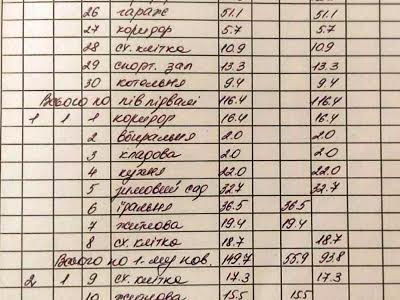 26 гараж 51.1 51.1
27 коридор 5.7 5.7
28 сх. клітка 10.9 10.9
29 спорт. зал 13.3 13.3
30 котельня 9.4 9.4
Всього по півпідвалі 116.4 116.4
1 1 1 коридор 16.4 16.4
2 вбиральня 2.0 2.0
3 кладова 2.0 2.0
4 кухня 22.0 22.0
5 зимовий сад 32.7 32.7
6 їдальня 36.5 36.5
7 житлова 19.4 19.4
8 сх. клітка 18.7 18.7
Всього по 1-му пов. 149.7 55.9 93.8
2 1 9 сх. клітка 17.3 17.3
10 житлова 15.5 15.5